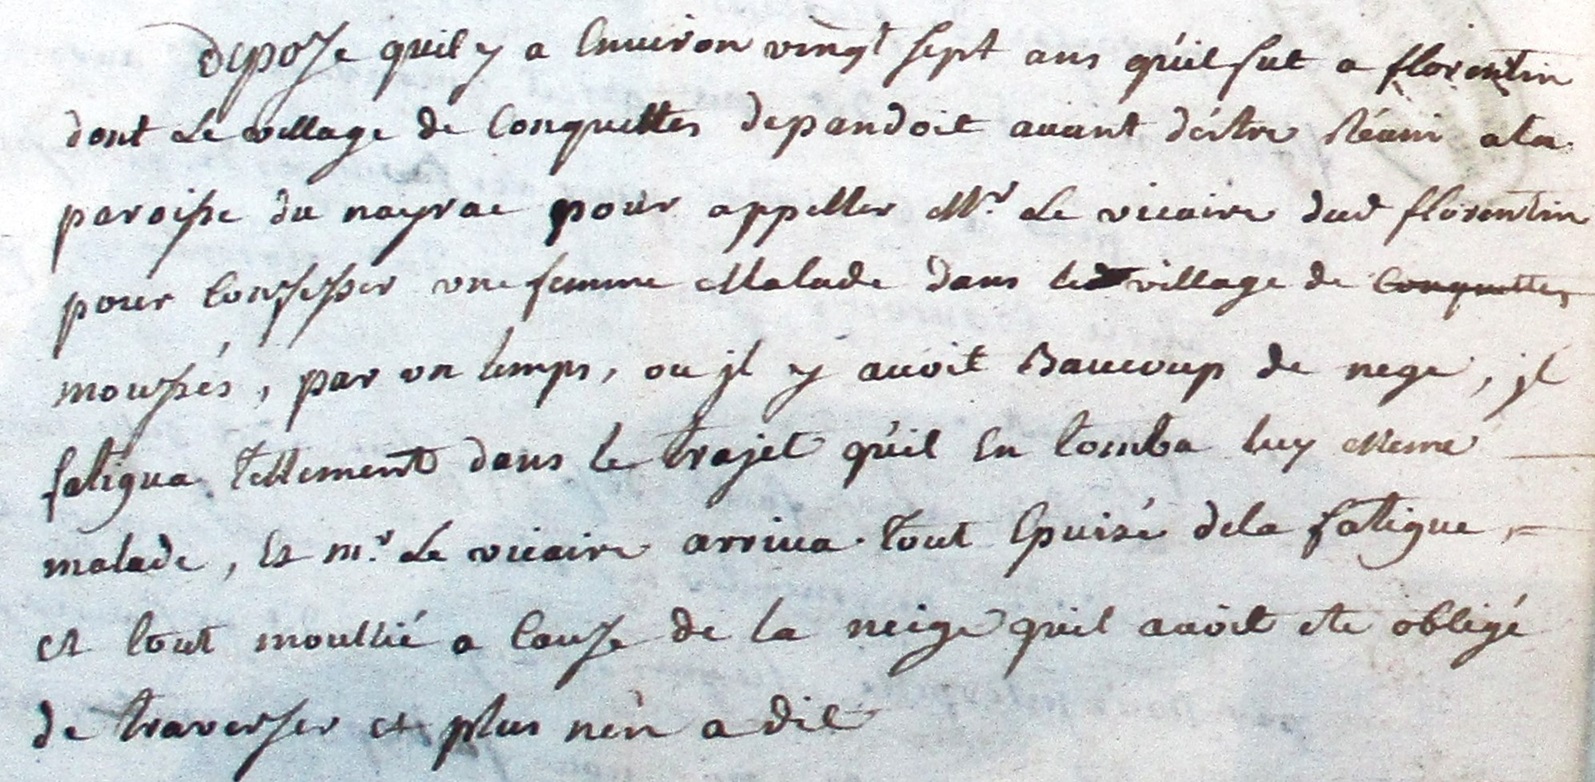 Depose quil y a Environ vingt sept ans qu'il fut a florentin
dont Le village de Conquettes depandoit avant d'éstre Réuni a la
paroisse du nayrac pour appeller Mr. Le vicaire dud florentin
pour Confesser une femme Malade dans le village de Conquettes
mousses, par un temps, ou jl y avoit Baucoup de nege, jl
fatigua tellement dans le trajet qu'il En tomba luy Meme
malade, Et mr. Le vicaire arriva tout Epuisé dela fatigue,
et tout moullié a Cause de la neige quil avoit ete obligé
de traverser et plus n'en a dit